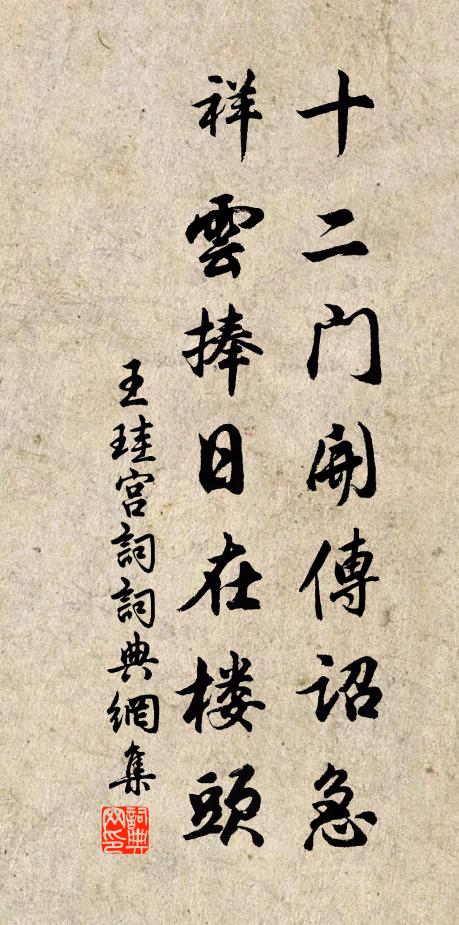 十二门開傳詔急
祥雲捧日在楼頭
王珪宫詞詞典網集
詞典网印